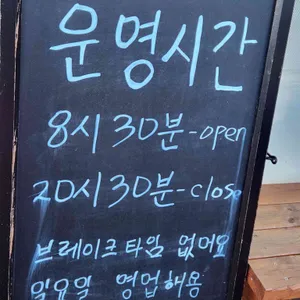 운명시간
8시30분-open
20시30분-close
브레이크타임 없어요
일요일 영업해용